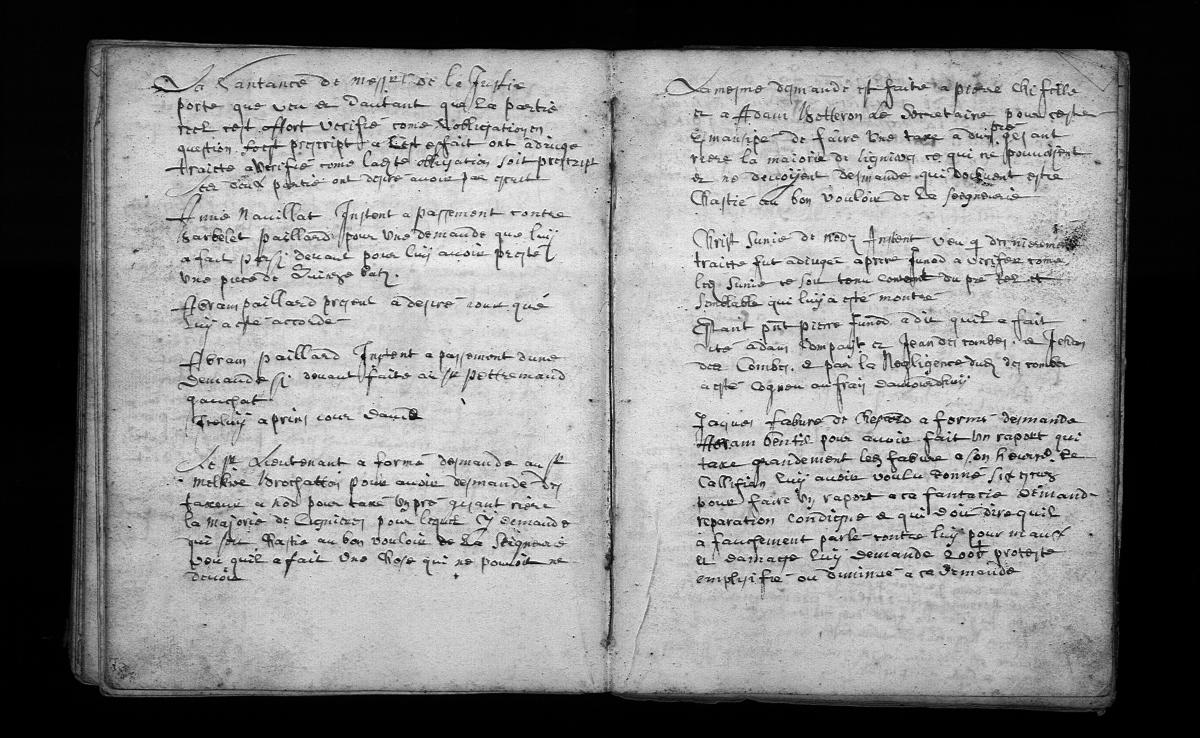 La Santance de messrs de la Justice
porte que veu et dautant que la partie
reel cest effort verifié come lobligation en
question soest prescript a lest esfait ont adiugé
traitte a verifié come laditte obligation soit prescript
les deux partie ont desire avoir par escrit
Annie Navillat Instent a passement contre
barbelet paillard pour une demande que luy
a fait par si devant pour luy avoir presté
une piece de Quinze batz.
Abram paillard present a desiré jour que
luy a esté accordé
Abram paillard Instent a passement dune
demande si devant faite au sr pettremand
gauchat
Iceluy a prins jour davis
Le sr Lieutenant a formé demande au sr
melkior brochatton pour avoir demandé des
taxeur a nod pour taxé un pré gisant riere
la majorie de Lignieres pour lequel Il demande
qui soit Chastié au bon vouloir de La Seigneurie
veu quil a fait une Chose qui ne pouvoit ne
devoir
La mesme demande est faite a pierre Chifelle
et a Adam botteron Le Secretaire pour cestre
Esmansipe de faire une taxe a dun pré gesant
riere la majorie de lignieres ce qui ne pouvoisent
et ne devoyent demande qui doibvent estre
Chastié au bon vouloir de La Seigneurie
Christ Sunie de nods Instent veu q dernierement
traitte fut adiugé a pierre Junod a verifer come
les Sunie ce soit tenu content du pré Rez et
Semblable qui luy a esté montré
Estant pnt pierre Junod a dit quil a fait
cité adam Compagt et Jean des combes, & Jehan
des Combes, & par la Negligence dud des combes
a esté Cogneu au frais daujourdhuy
Jaques fabure de Chesard a formé demande
Abram bentit pour avoir fait un raport qui
taxe grandement les fabure a son heured. Le
Callifian luy avoir voulu donné six escus
pour faire un raport a ca fantacie demand
reparation condigne & qui doit dire quil
a faucement parlé contre luy pour maux
et damage luy demande 200£ proteste
emplyifié ou diminué a ca demande